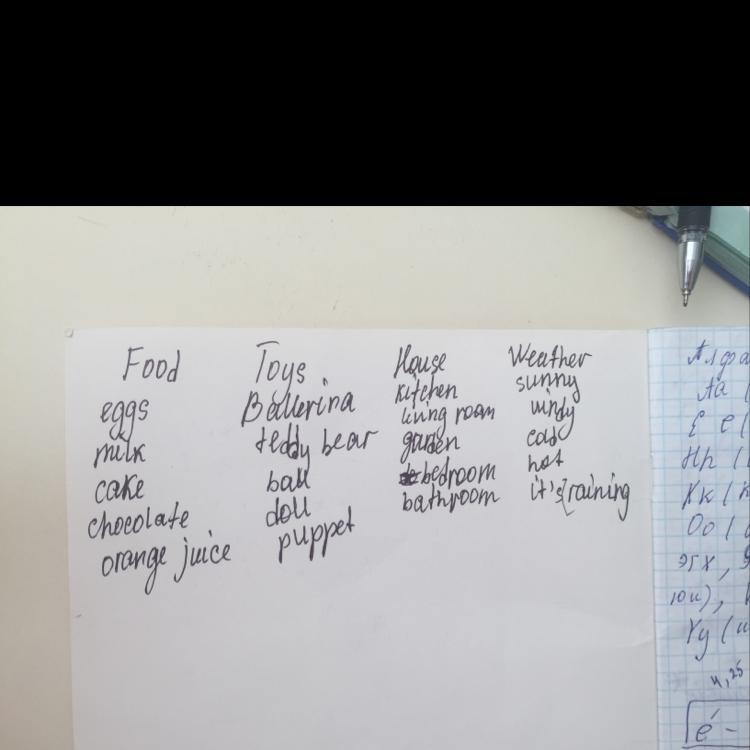 Food
eggs
milk
cake
chocolate
orange juice
Toys
Ballerina
teddy bear
ball
doll
puppet
House
kitchen
living room
garden
bedroom
bathroom
Weather
sunny
windy
cold
hot
it's raining
Аа
Оо
4,25
é -